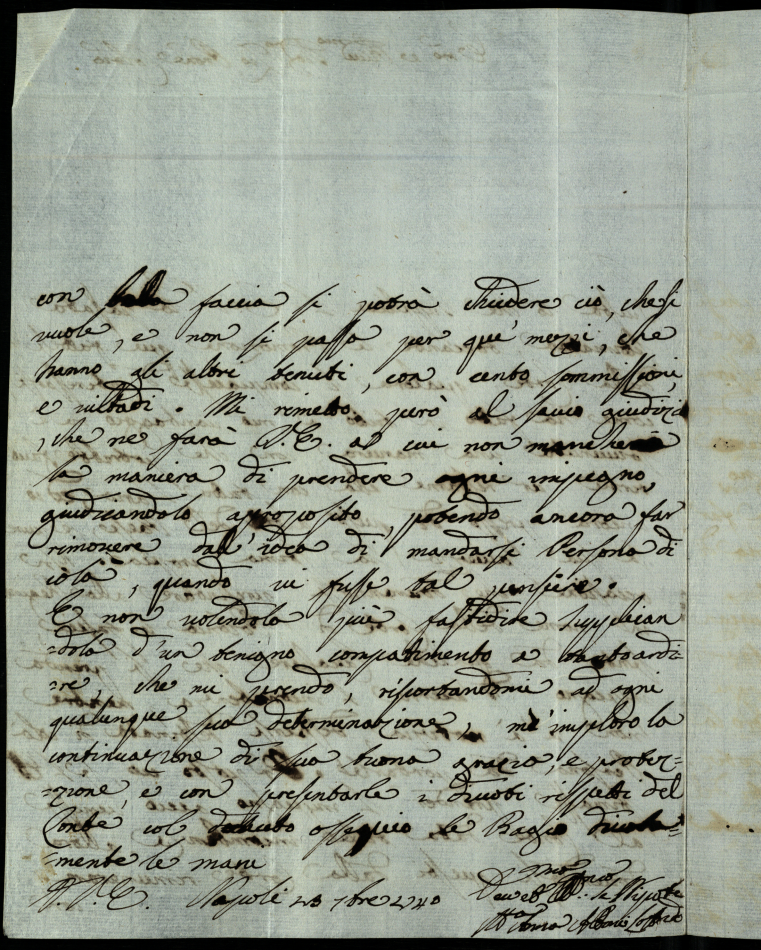 con faccia si potrà chiudere ciò, che si
vuole, e non si passa per que' mezzi, che
hanno gli altri tenuti, con cento sommissioni,
e viltadi. Mi rimetto però al savio giudizio
, che ne farà V.E. a cui non mancherà
la maniera di prendere ogni impegno,
giudicandolo aproposito, potendo ancora far
rimovere dall'idea di mandarsi Persona di
colà, quando vi fusse tal pensiere.
E non volendola più fastidire supplican
=dola d'un benigno compatimento a tanto ardi=
=re, che mi prendo, risportandomi ad ogni
qualunque sua determinazione, m'imploro la
continuazione di sua buona grazia, e protez=
=zione, e con presentarle i divoti rispetti del
Conte col dovuto ossequio le Bagio divota=
=mente le mani
Napoli 7bre 1740